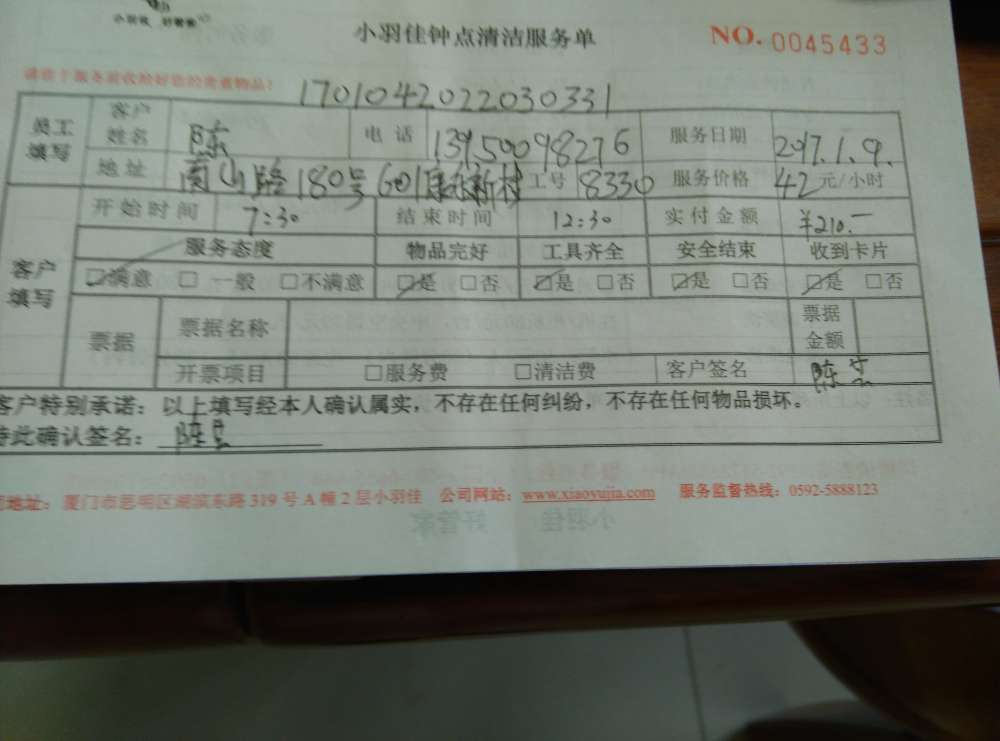 小羽佳 好管家
小羽佳钟点清洁服务单
NO. 0045433
请您于服务前收拾好您的贵重物品!
1701042022030331
员工填写 客户姓名 陈 电话 13950098276 服务日期 2017.1.9.
地址 南山路180号601康乐新村 工号 8330 服务价格 42元/小时
客户填写 开始时间 7:30 结束时间 12:30 实付金额 ¥210.—
服务态度 物品完好 工具齐全 安全结束 收到卡片
☑满意 □一般 □不满意 ☑是 □否 ☑是 □否 ☑是 □否 ☑是 □否
票据 票据名称 票据金额
开票项目 □服务费 □清洁费 客户签名 陈
客户特别承诺：以上填写经本人确认属实，不存在任何纠纷，不存在任何物品损坏。
特此确认签名：陈
地址：厦门市思明区湖滨东路319号A幢2层小羽佳 公司网站：www.xiaoyujia.com 服务监督热线：0592-5888123